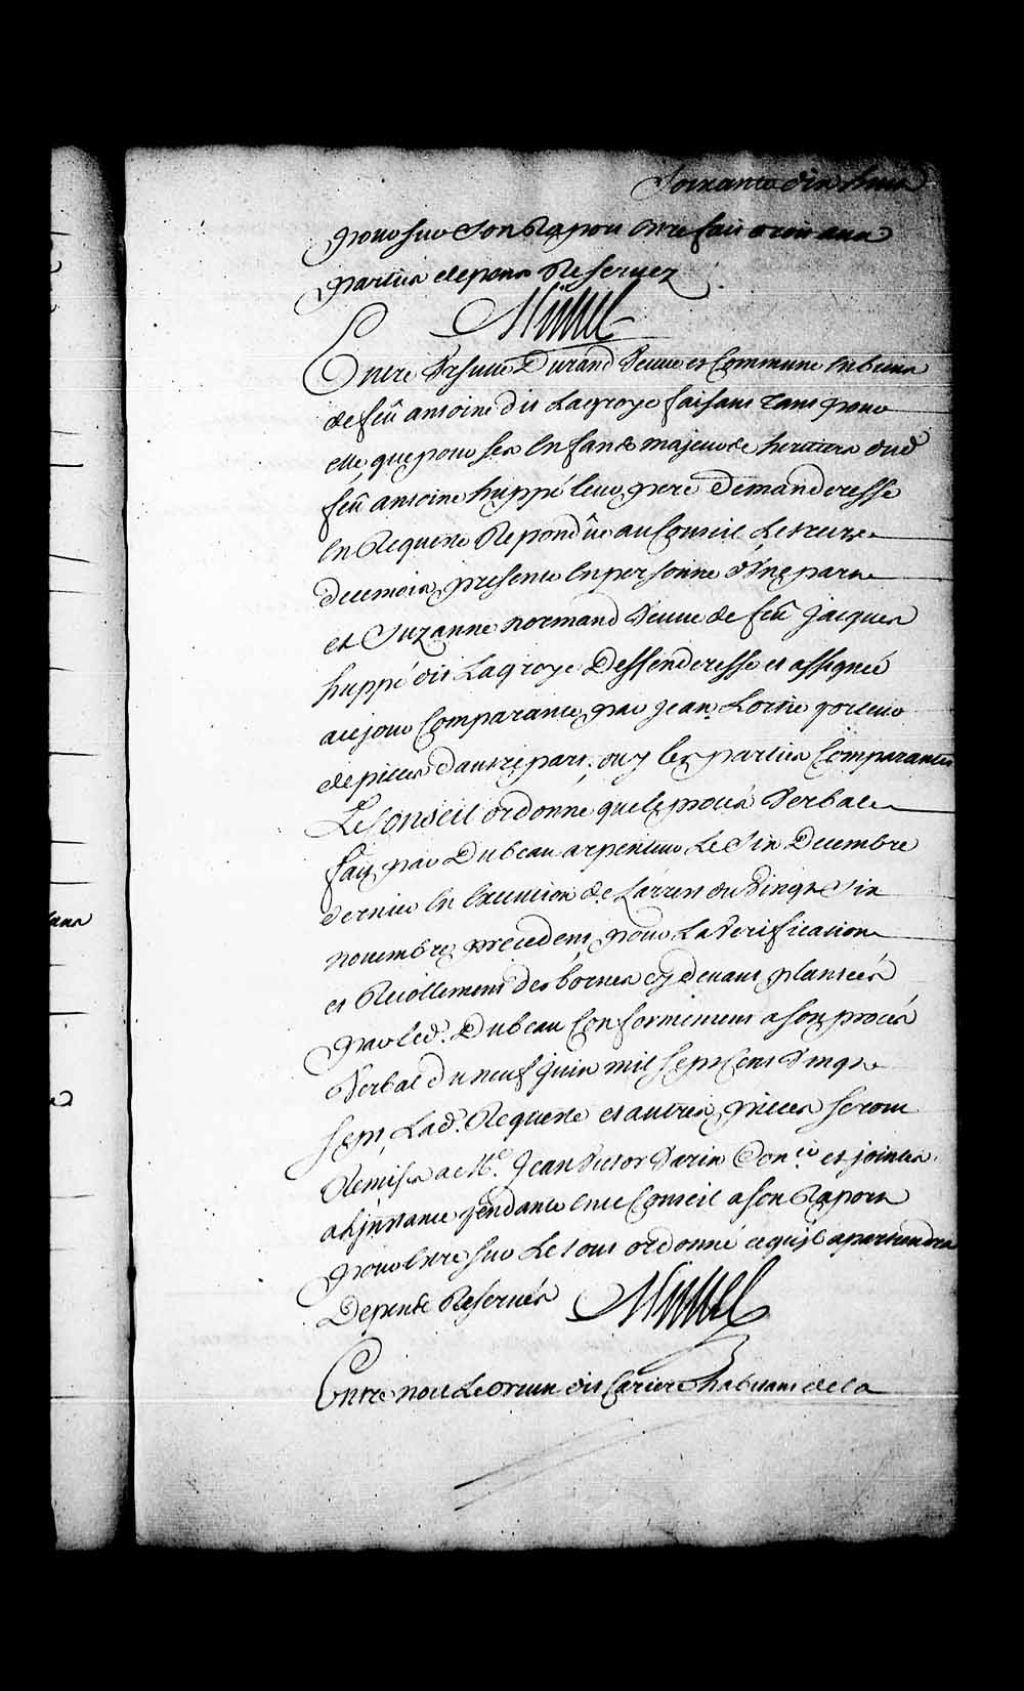 Soixante dix huit
pour sur son Raport estre fait droit aux
parties depens Reservez
Entre Ursule Durand veuve et Commune en biens
de feu antoine dit Lagroye faisant tant pour
elle que pour ses Enfans majeurs heritiers dud
feu antoine huppé leur pere Demanderesse
En Requeste Repondüe au Conseil Le treize
de ce mois, presente en personne d'une part
et Suzanne normand veuve de feu Jacques
huppé dit Lagroye Deffenderesse et assignée
a ce jour Comparante par Jean Lorine porteur
de pieces d'autre part, ouy les parties Comparantes
Le Conseil ordonne que le procés Verbal
fait par Dubeau arpenteur Le Six Decembre
dernier en Execution de L'arrest du Vingt Six
novembre precedent pour La Verification
et Recollement des bornes cy devant plantées
par led. Dubeau Conformement a son procés
Verbal du neuf juin mil sept Cent Vingt
sept, Lad. Requeste et autres pieces seront
Remises a Me. Jean Victor Varin Coner. et jointes
a L'jnstance pendante en ce Conseil a son Raport
pour Estre sur Le tout ordonné ce qu'jl apartiendra
Depens Reservés
Entre noel Le dit Cariere habitant de la